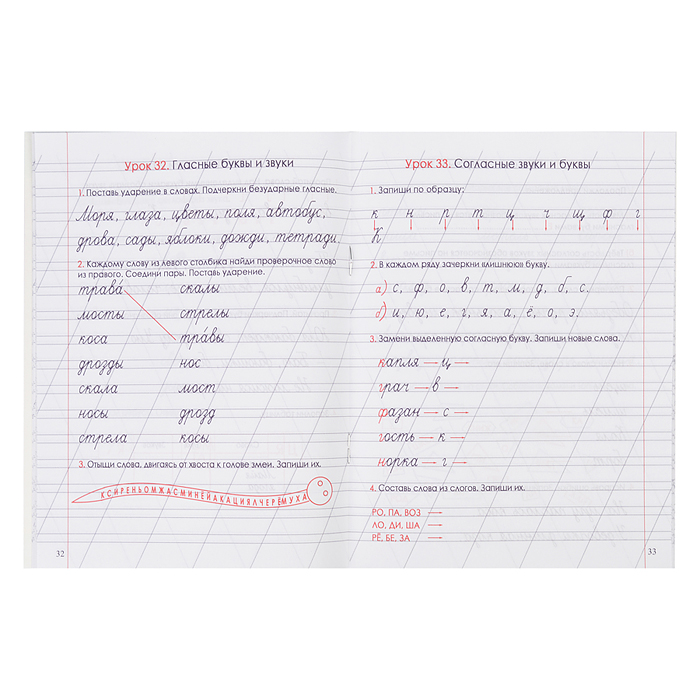 Урок 32. Гласные буквы и звуки
1. Поставь ударение в словах. Подчеркни безударные гласные.
Моря, глаза, цветы, поля, автобус,
дрова, сады, яблоки, дожди, тетради.
2. Каждому слову из левого столбика найди проверочное слово
из правого. Соедини пары. Поставь ударение.
трава́ скалы
мосты стрелы
коса тра́вы
дрозды нос
скала мост
носы дрозд
стрела косы
3. Отыщи слова, двигаясь от хвоста к голове змеи. Запиши их.
КСИРЕНЬОМЖАСМИНЕЙАКАЦИЯЛЧЕРЁМУХА
32
Урок 33. Согласные звуки и буквы
1. Запиши по образцу:
к н р т щ ч щ ф г
К
2. В каждом ряду зачеркни «лишнюю» букву.
а) с, ф, о, в, т, м, д, б, с.
б) и, ю, е, г, я, а, ё, о, э.
3. Замени выделенную согласную букву. Запиши новые слова.
капля — ц —
грач — в —
фазан — с —
гость — к —
норка — г —
4. Составь слова из слогов. Запиши их.
РО, ПА, ВОЗ —
ЛО, ДИ, ША —
РЁ, БЕ, ЗА —
33